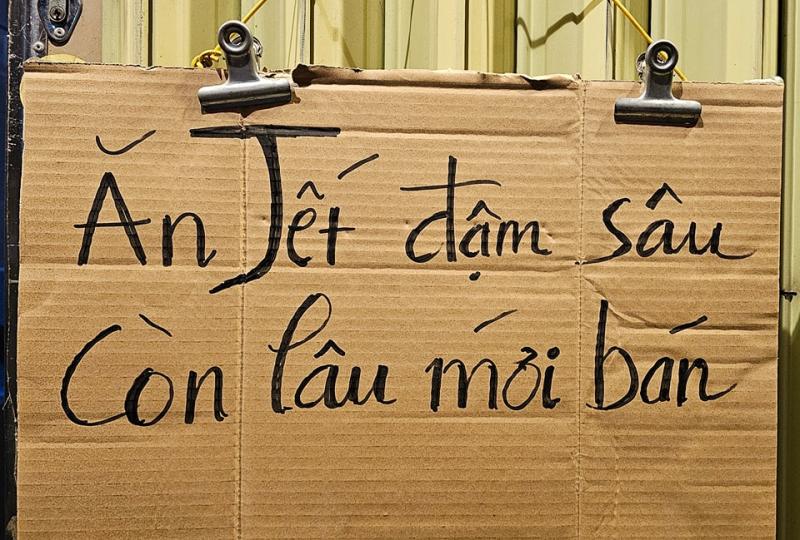 Ăn Tết đậm sâu
Còn lâu mới bán